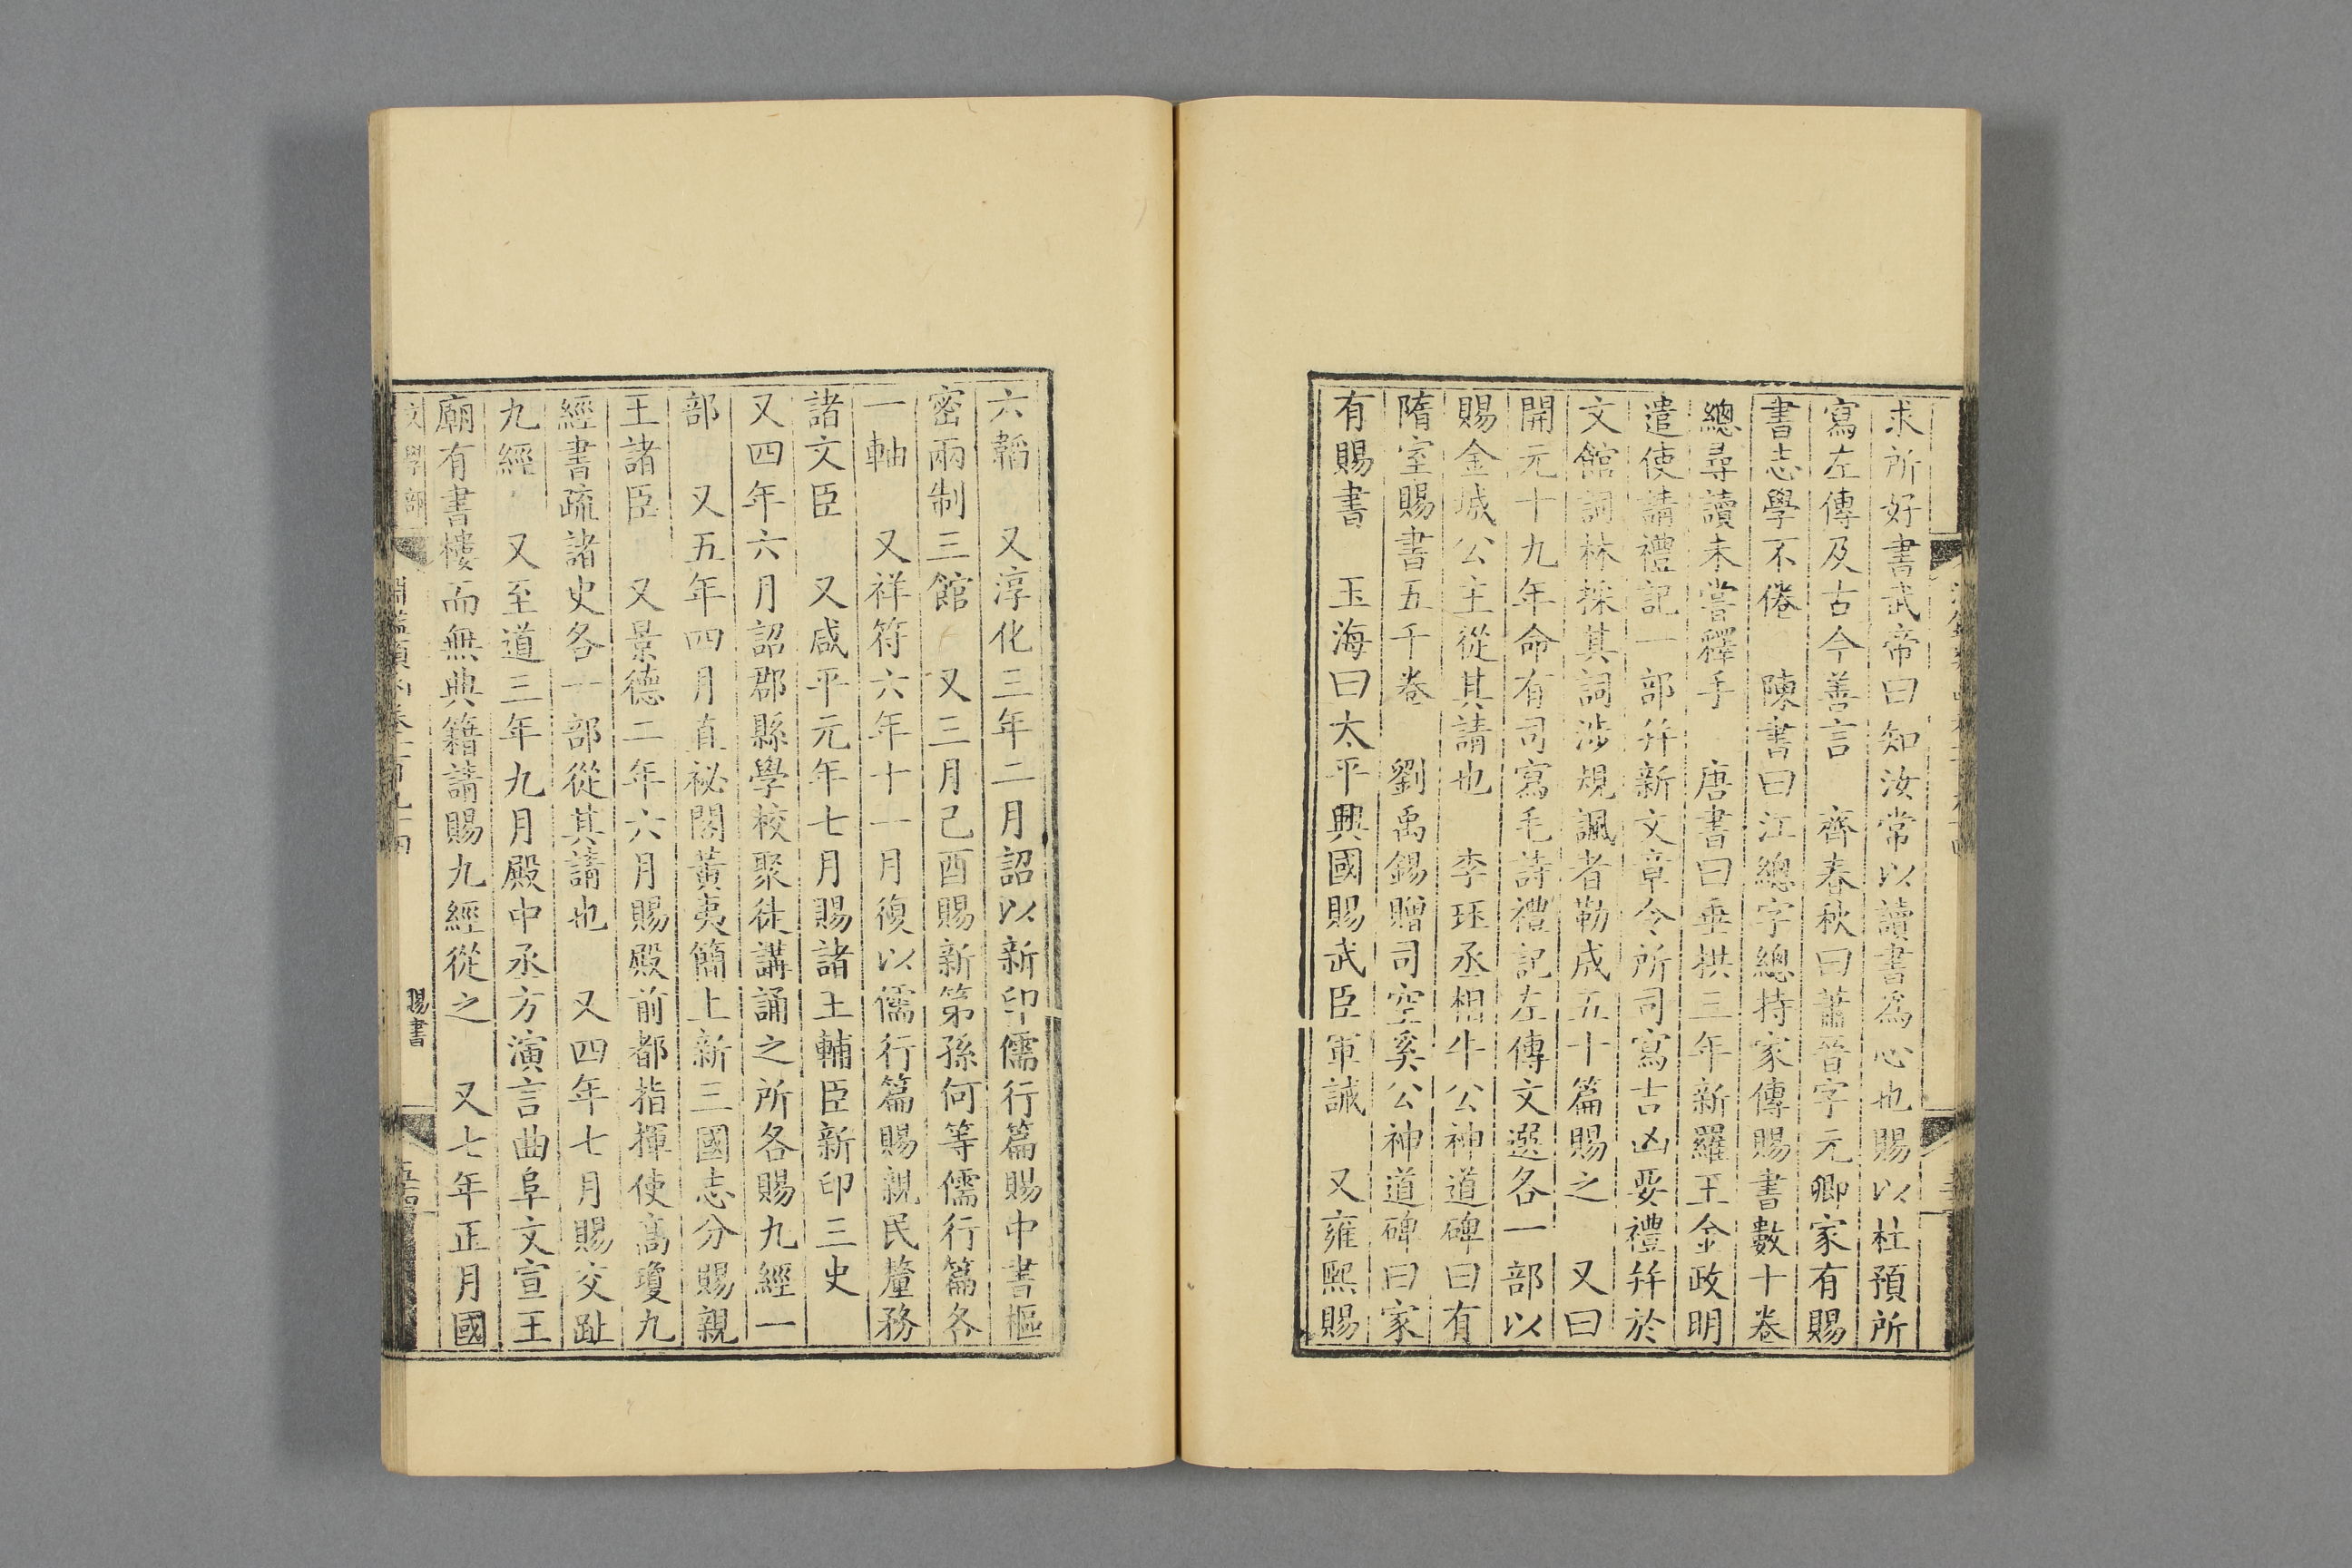 求所好書武帝曰知汝常以讀書為心也賜以杜預所
寫左傳及古今善言　齊春秋曰蕭晉字元卿家有賜
書志學不倦　陳書曰江總字總持家傳賜書數十卷
總尋讀未嘗釋手　唐書曰垂拱三年新羅王金政明
遣使請禮記一部幷新文章令所司寫吉凶要禮幷於
文館詞林採其詞涉規諷者勒成五十篇賜之　又曰
開元十九年命有司寫毛詩禮記左傳文選各一部以
賜金城公主從其請也　李珏丞相牛公神道碑曰有
隋室賜書五千卷　劉禹錫贈司空奚公神道碑曰家
有賜書　玉海曰太平興國賜武臣軍誡　又雍熙賜
六韜　又淳化三年二月詔以新印儒行篇賜中書樞
密兩制三館　又三月己酉賜新第孫何等儒行篇各
一軸　又祥符六年十一月復以儒行篇賜親民釐務
諸文臣　又咸平元年七月賜諸王輔臣新印三史
又四年六月詔郡縣學校聚徒講誦之所各賜九經一
部　又五年四月直祕閣黃夷簡上新三國志分賜親
王諸臣　又景德二年六月賜殿前都指揮使高瓊九
經書疏諸史各一部從其請也　又四年七月賜交趾
九經　又至道三年九月殿中丞方演言曲阜文宣王
廟有書樓而無典籍請賜九經從之　又七年正月國
文學部
淵鑑類函卷一百九十四
賜書